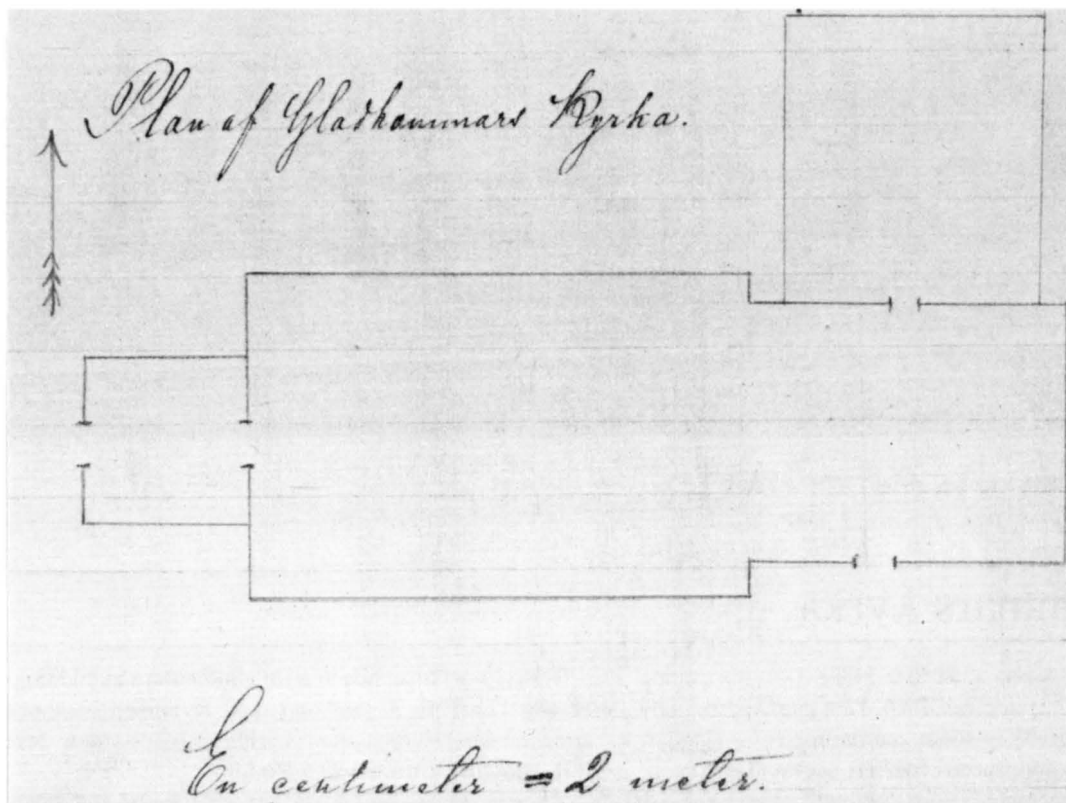 Plan af Gladhammars Kyrka.
En centimeter = 2 meter.